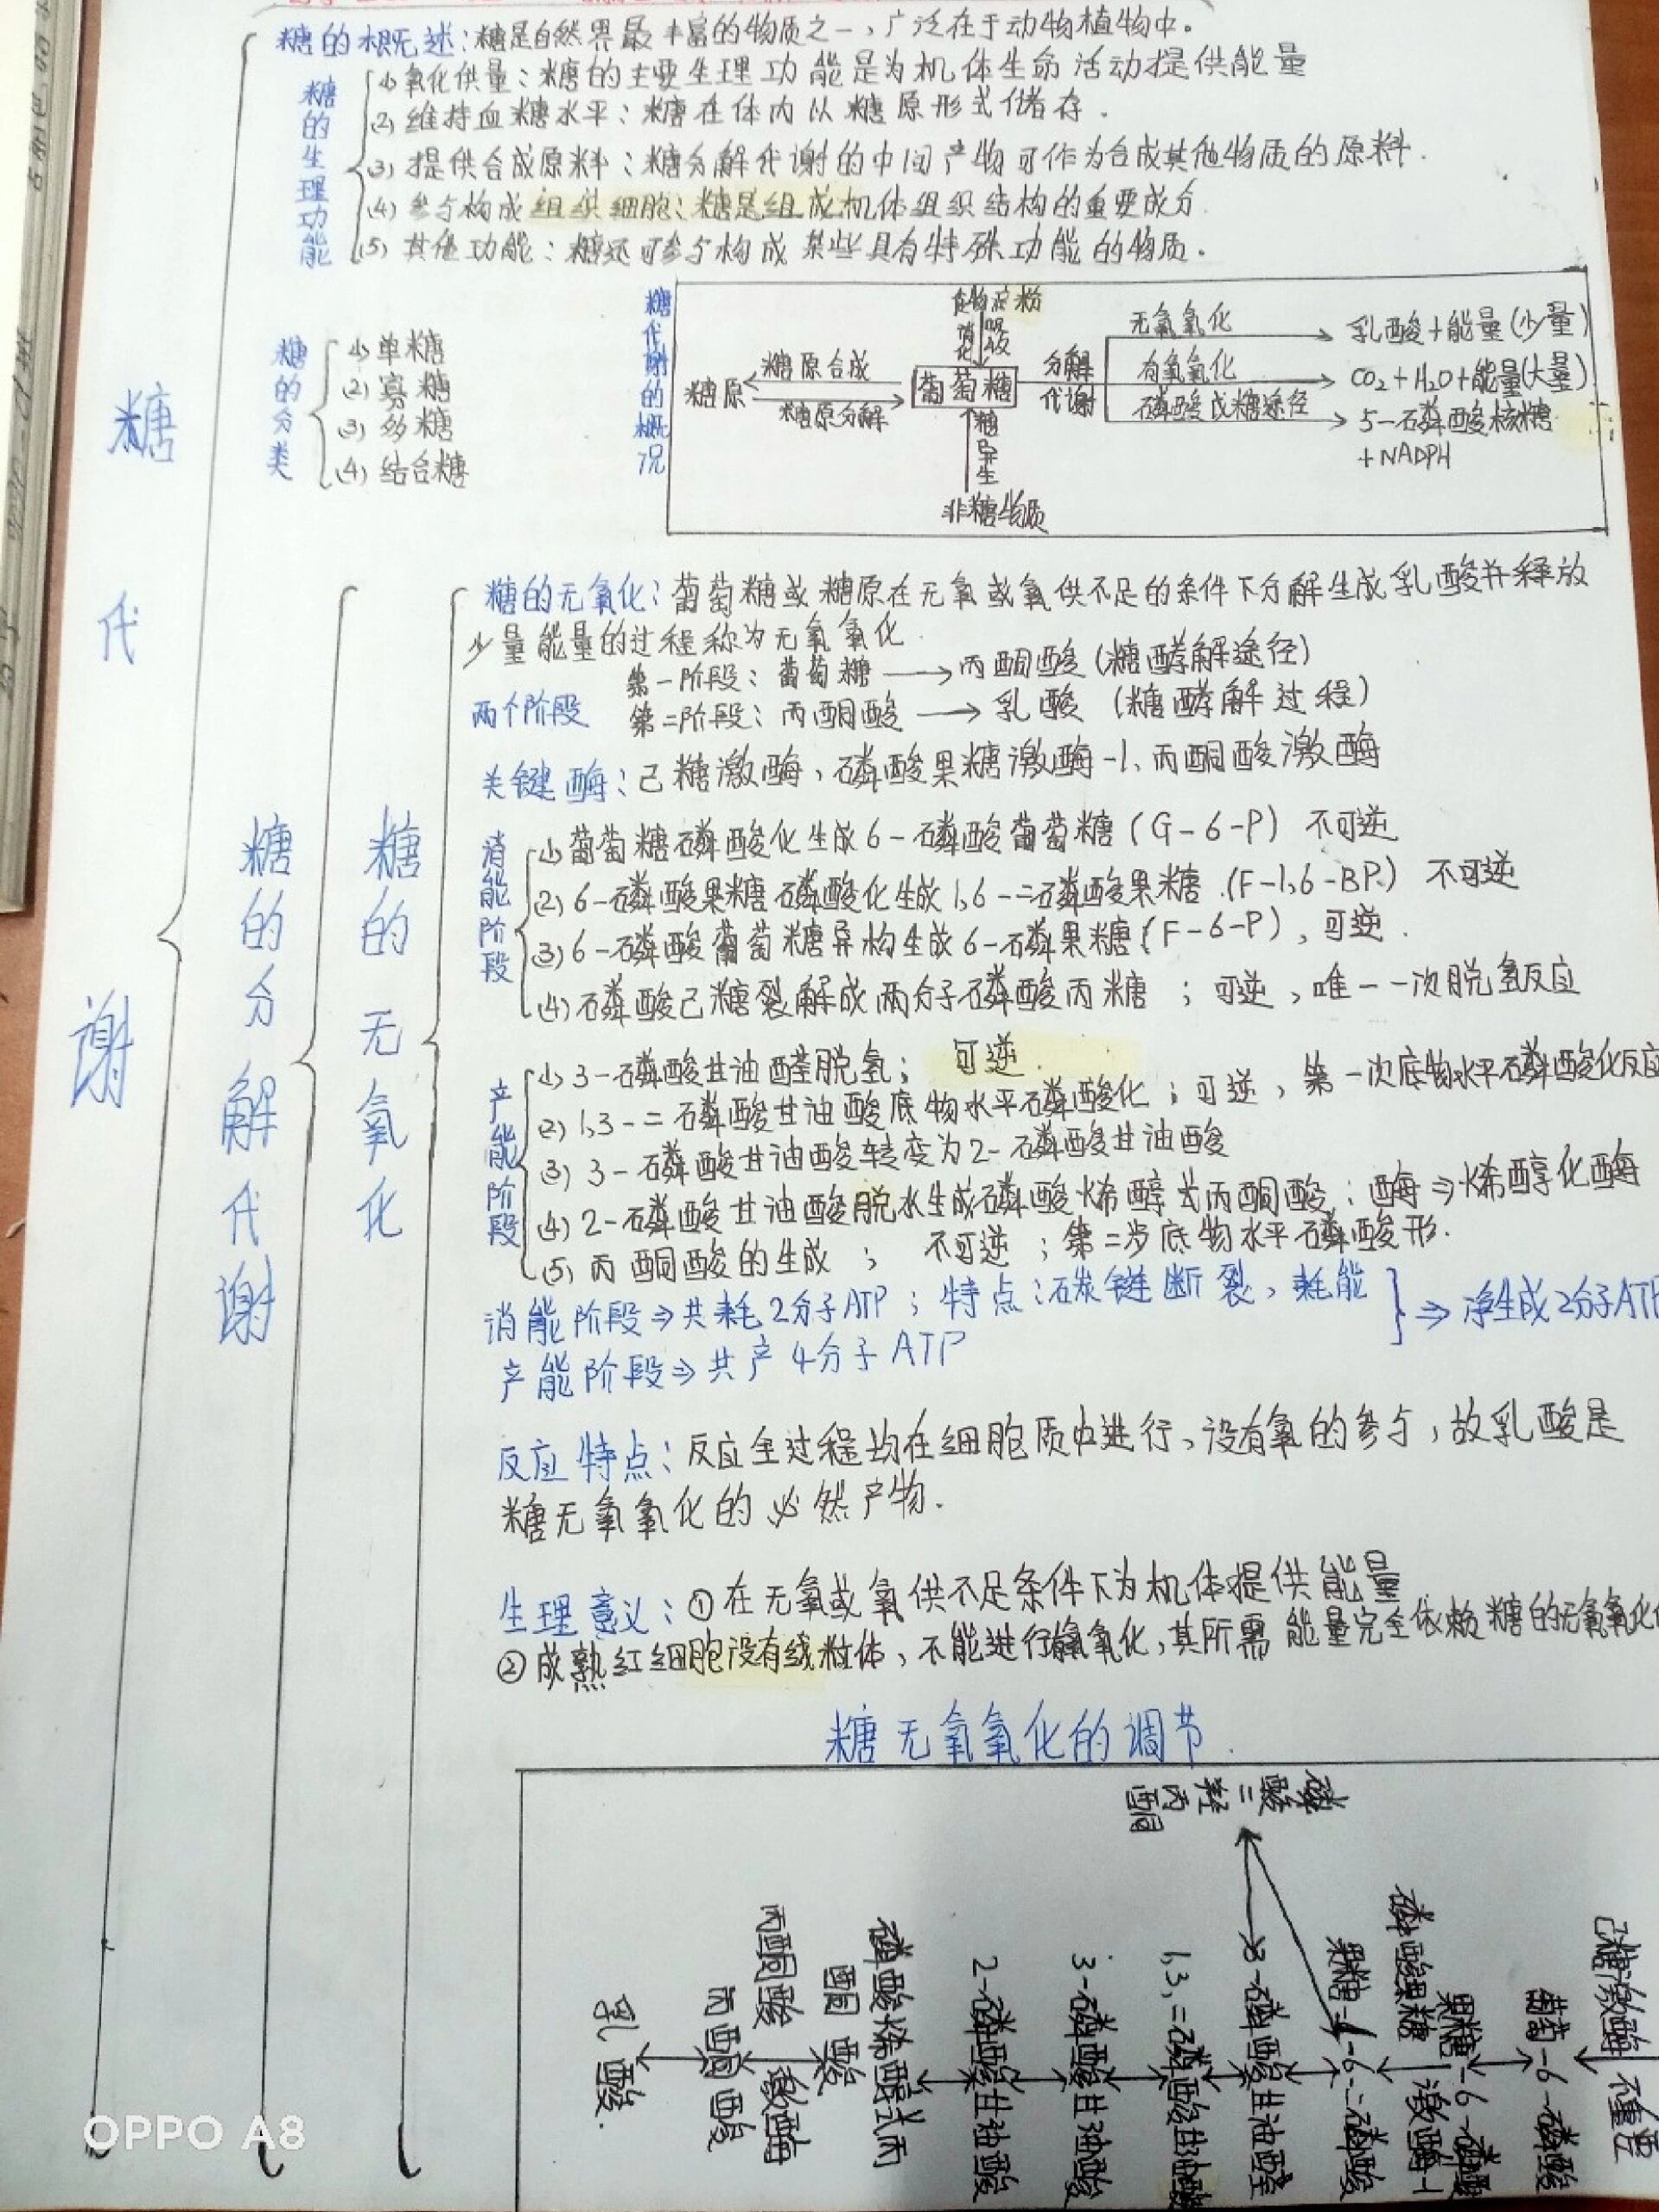 糖代谢
糖的概述：糖是自然界最丰富的物质之一，广泛在于动物植物中。
糖的生理功能
(1) 氧化供量：糖的主要生理功能是为机体生命活动提供能量
(2) 维持血糖水平：糖在体内以糖原形式储存．
(3) 提供合成原料：糖分解代谢的中间产物可作为合成其他物质的原料．
(4) 参与构成组织细胞：糖是组成机体组织结构的重要成分．
(5) 其他功能：糖还可参与构成某些具有特殊功能的物质．
糖的分类
(1) 单糖
(2) 寡糖
(3) 多糖
(4) 结合糖
糖代谢的概况
食物淀粉
消化 吸收
糖原
糖原合成
糖原分解
葡萄糖
糖异生
非糖物质
分解代谢
无氧氧化 乳酸+能量(少量)
有氧氧化 CO2+H2O+能量(大量)
磷酸戊糖途径 5-磷酸核糖
+NADPH
糖的分解代谢
糖的无氧化
糖的无氧化：葡萄糖或糖原在无氧或氧供不足的条件下分解生成乳酸并释放
少量能量的过程称为无氧氧化．
两个阶段
第一阶段：葡萄糖→丙酮酸(糖酵解途径)
第二阶段：丙酮酸→乳酸(糖酵解过程)
关键酶：己糖激酶、磷酸果糖激酶-1、丙酮酸激酶
消能阶段
(1) 葡萄糖磷酸化生成6-磷酸葡萄糖(G-6-P) 不可逆
(2) 6-磷酸果糖磷酸化生成1,6-二磷酸果糖(F-1,6-BP) 不可逆
(3) 6-磷酸葡萄糖异构生成6-磷果糖(F-6-P)，可逆．
(4) 磷酸己糖裂解成两分子磷酸丙糖；可逆，唯一一次脱氢反应
产能阶段
(1) 3-磷酸甘油醛脱氢； 可逆．
(2) 1,3-二磷酸甘油酸底物水平磷酸化；可逆，第一次底物水平磷酸化反应
(3) 3-磷酸甘油酸转变为2-磷酸甘油酸
(4) 2-磷酸甘油酸脱水生成磷酸烯醇式丙酮酸；酶⇒烯醇化酶
(5) 丙酮酸的生成； 不可逆；第二步底物水平磷酸形．
消能阶段⇒共耗2分子ATP；特点：碳链断裂，耗能
产能阶段⇒共产4分子ATP
⇒净生成2分子ATP
反应特点：反应全过程均在细胞质中进行，没有氧的参与，故乳酸是
糖无氧氧化的必然产物．
生理意义：①在无氧或氧供不足条件下为机体提供能量
②成熟红细胞没有线粒体，不能进行氧化，其所需能量完全依赖糖的无氧氧化
糖无氧氧化的调节．
磷酸二羟丙酮
己糖激酶
葡萄-6-磷酸
果糖-6-磷酸
磷酸果糖激酶-1
果糖-1-6-二磷酸
3-磷酸甘油醛
1,3,二磷酸甘油酸
3-磷酸甘油酸
2-磷酸甘油酸
磷酸烯醇式丙酮酸
丙酮酸激酶
丙酮酸
乳酸．
OPPO A8